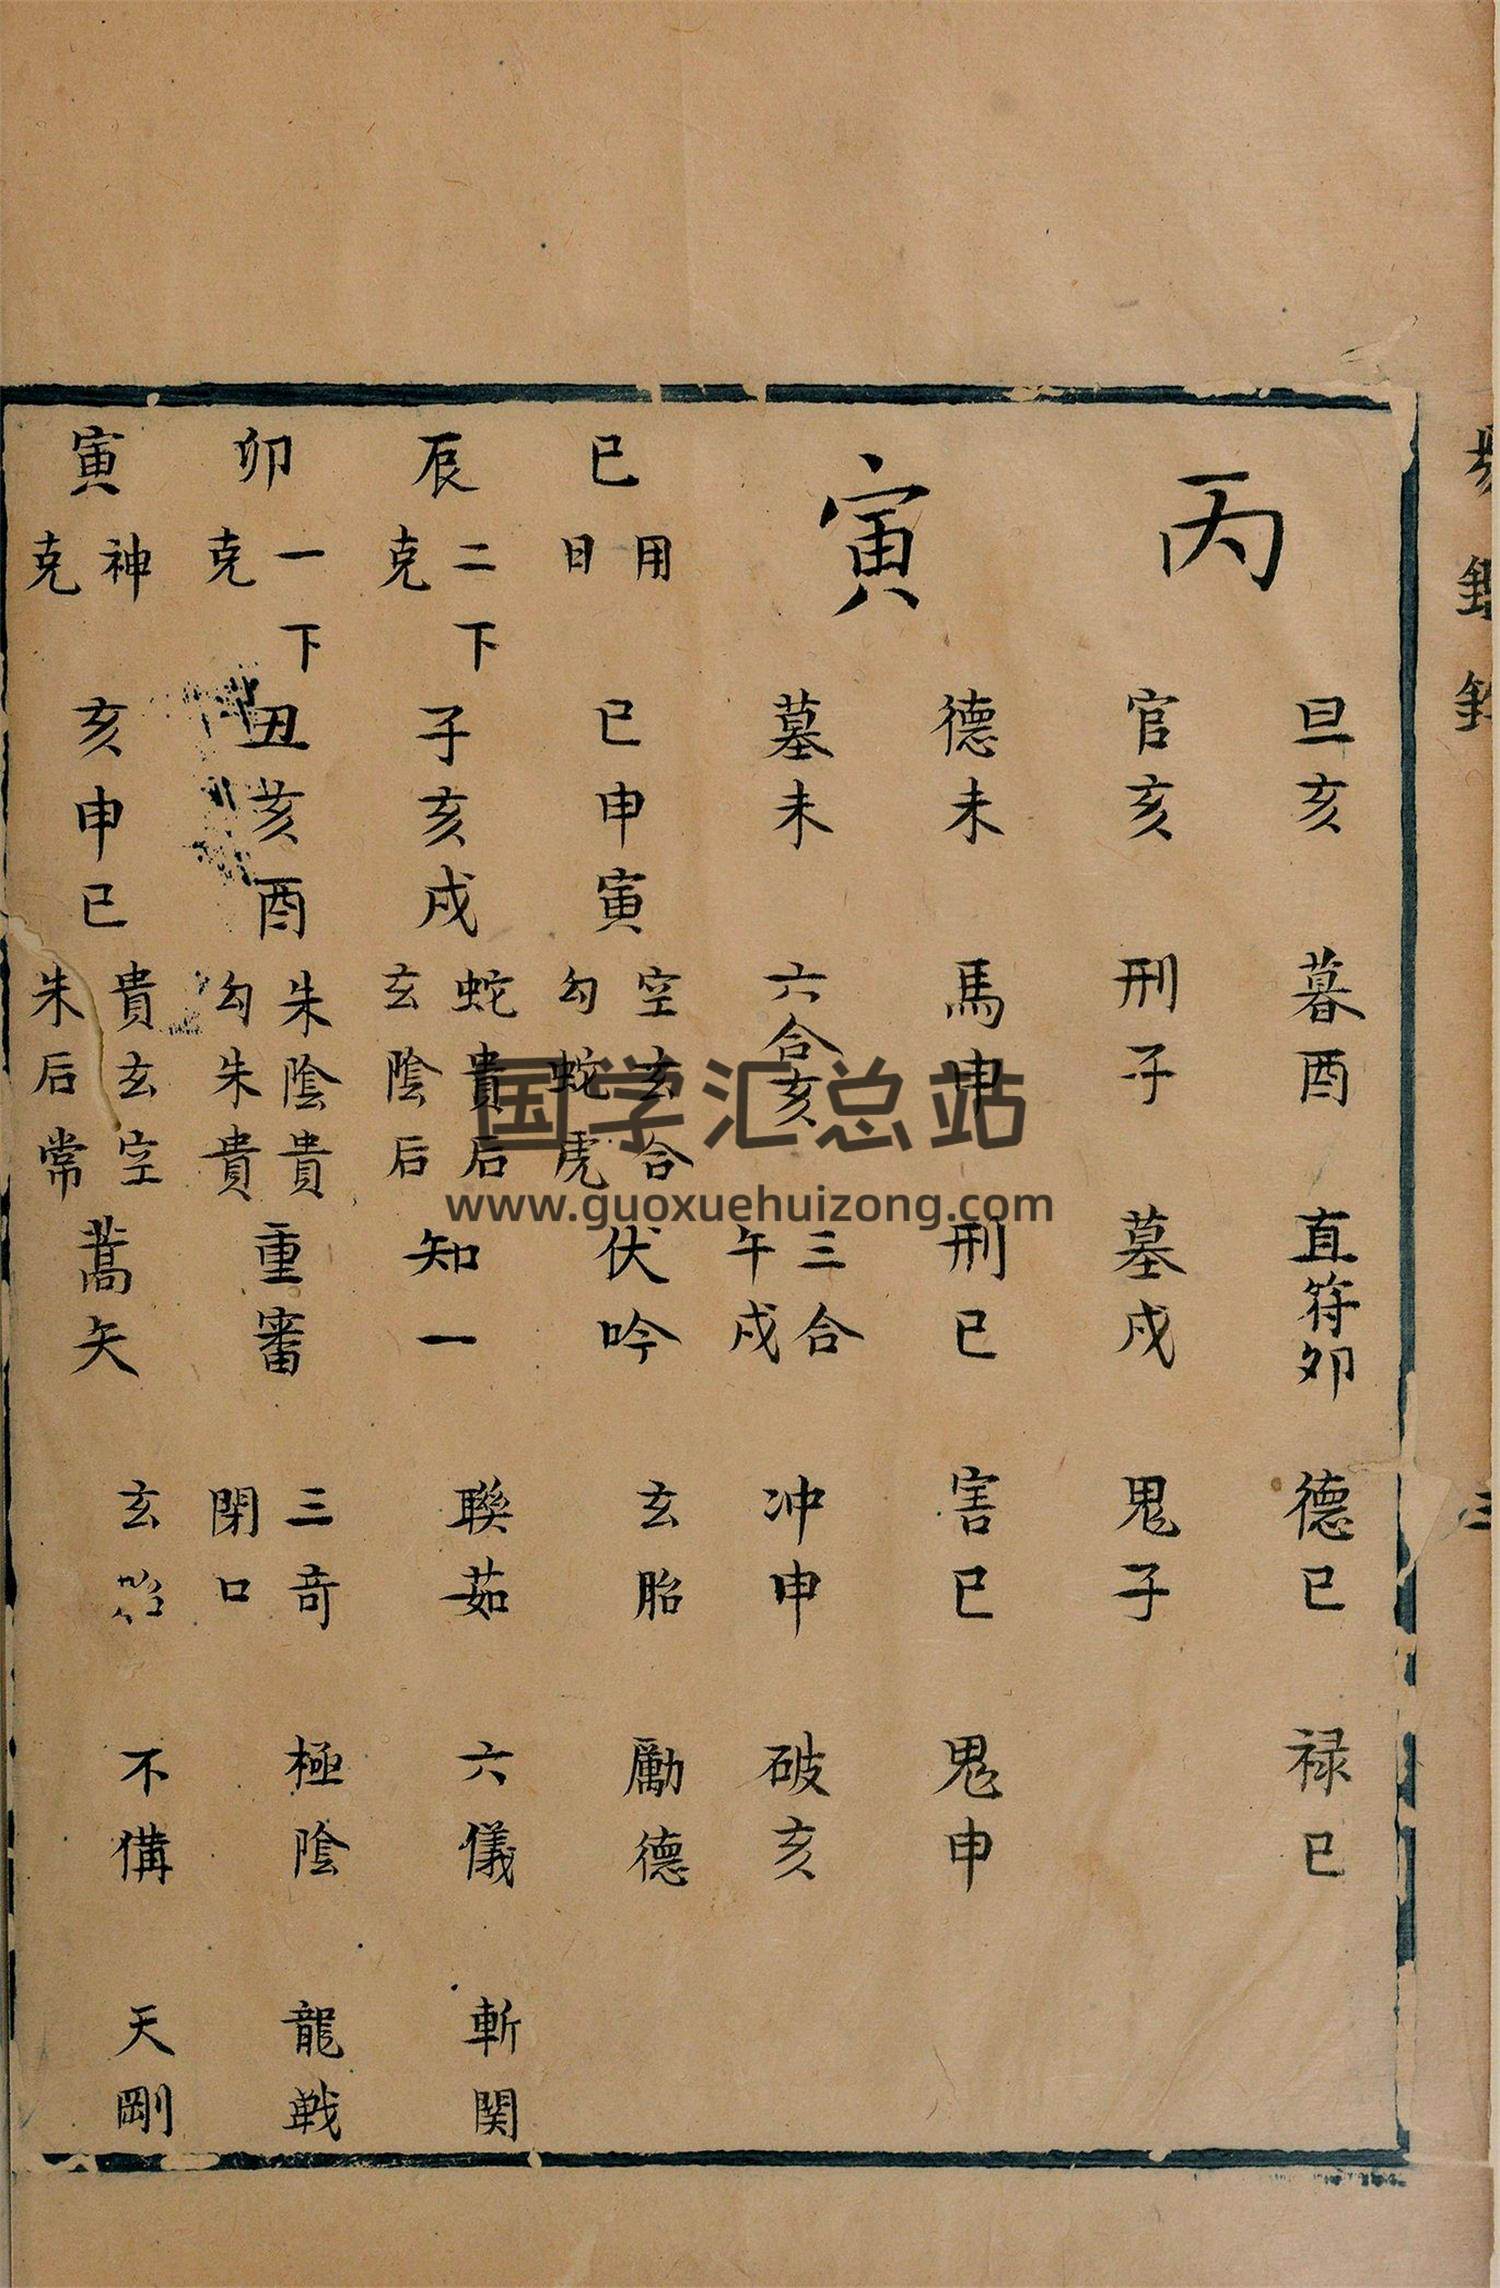 丙
旦亥 暮酉 直符卯 德巳 禄巳
官亥 刑子 墓戌 鬼子
寅
德未 馬申 刑巳 害巳 鬼申
墓未 六合亥 三合午戌 冲申 破亥
巳 用日 巳申寅 空玄合 勾蛇虎 伏吟 玄胎 勵德
辰 二下克 子亥戌 蛇貴后 玄陰后 知一 聯茹 六儀 斬関
卯 一下克 丑亥酉 朱陰貴 勾朱貴 重審 三奇 閉口 極陰 龍戰
寅 神克 亥申巳 貴玄空 朱后常 蒿矢 玄 不備 天剛
国学汇总站
www.guoxuehuizong.com